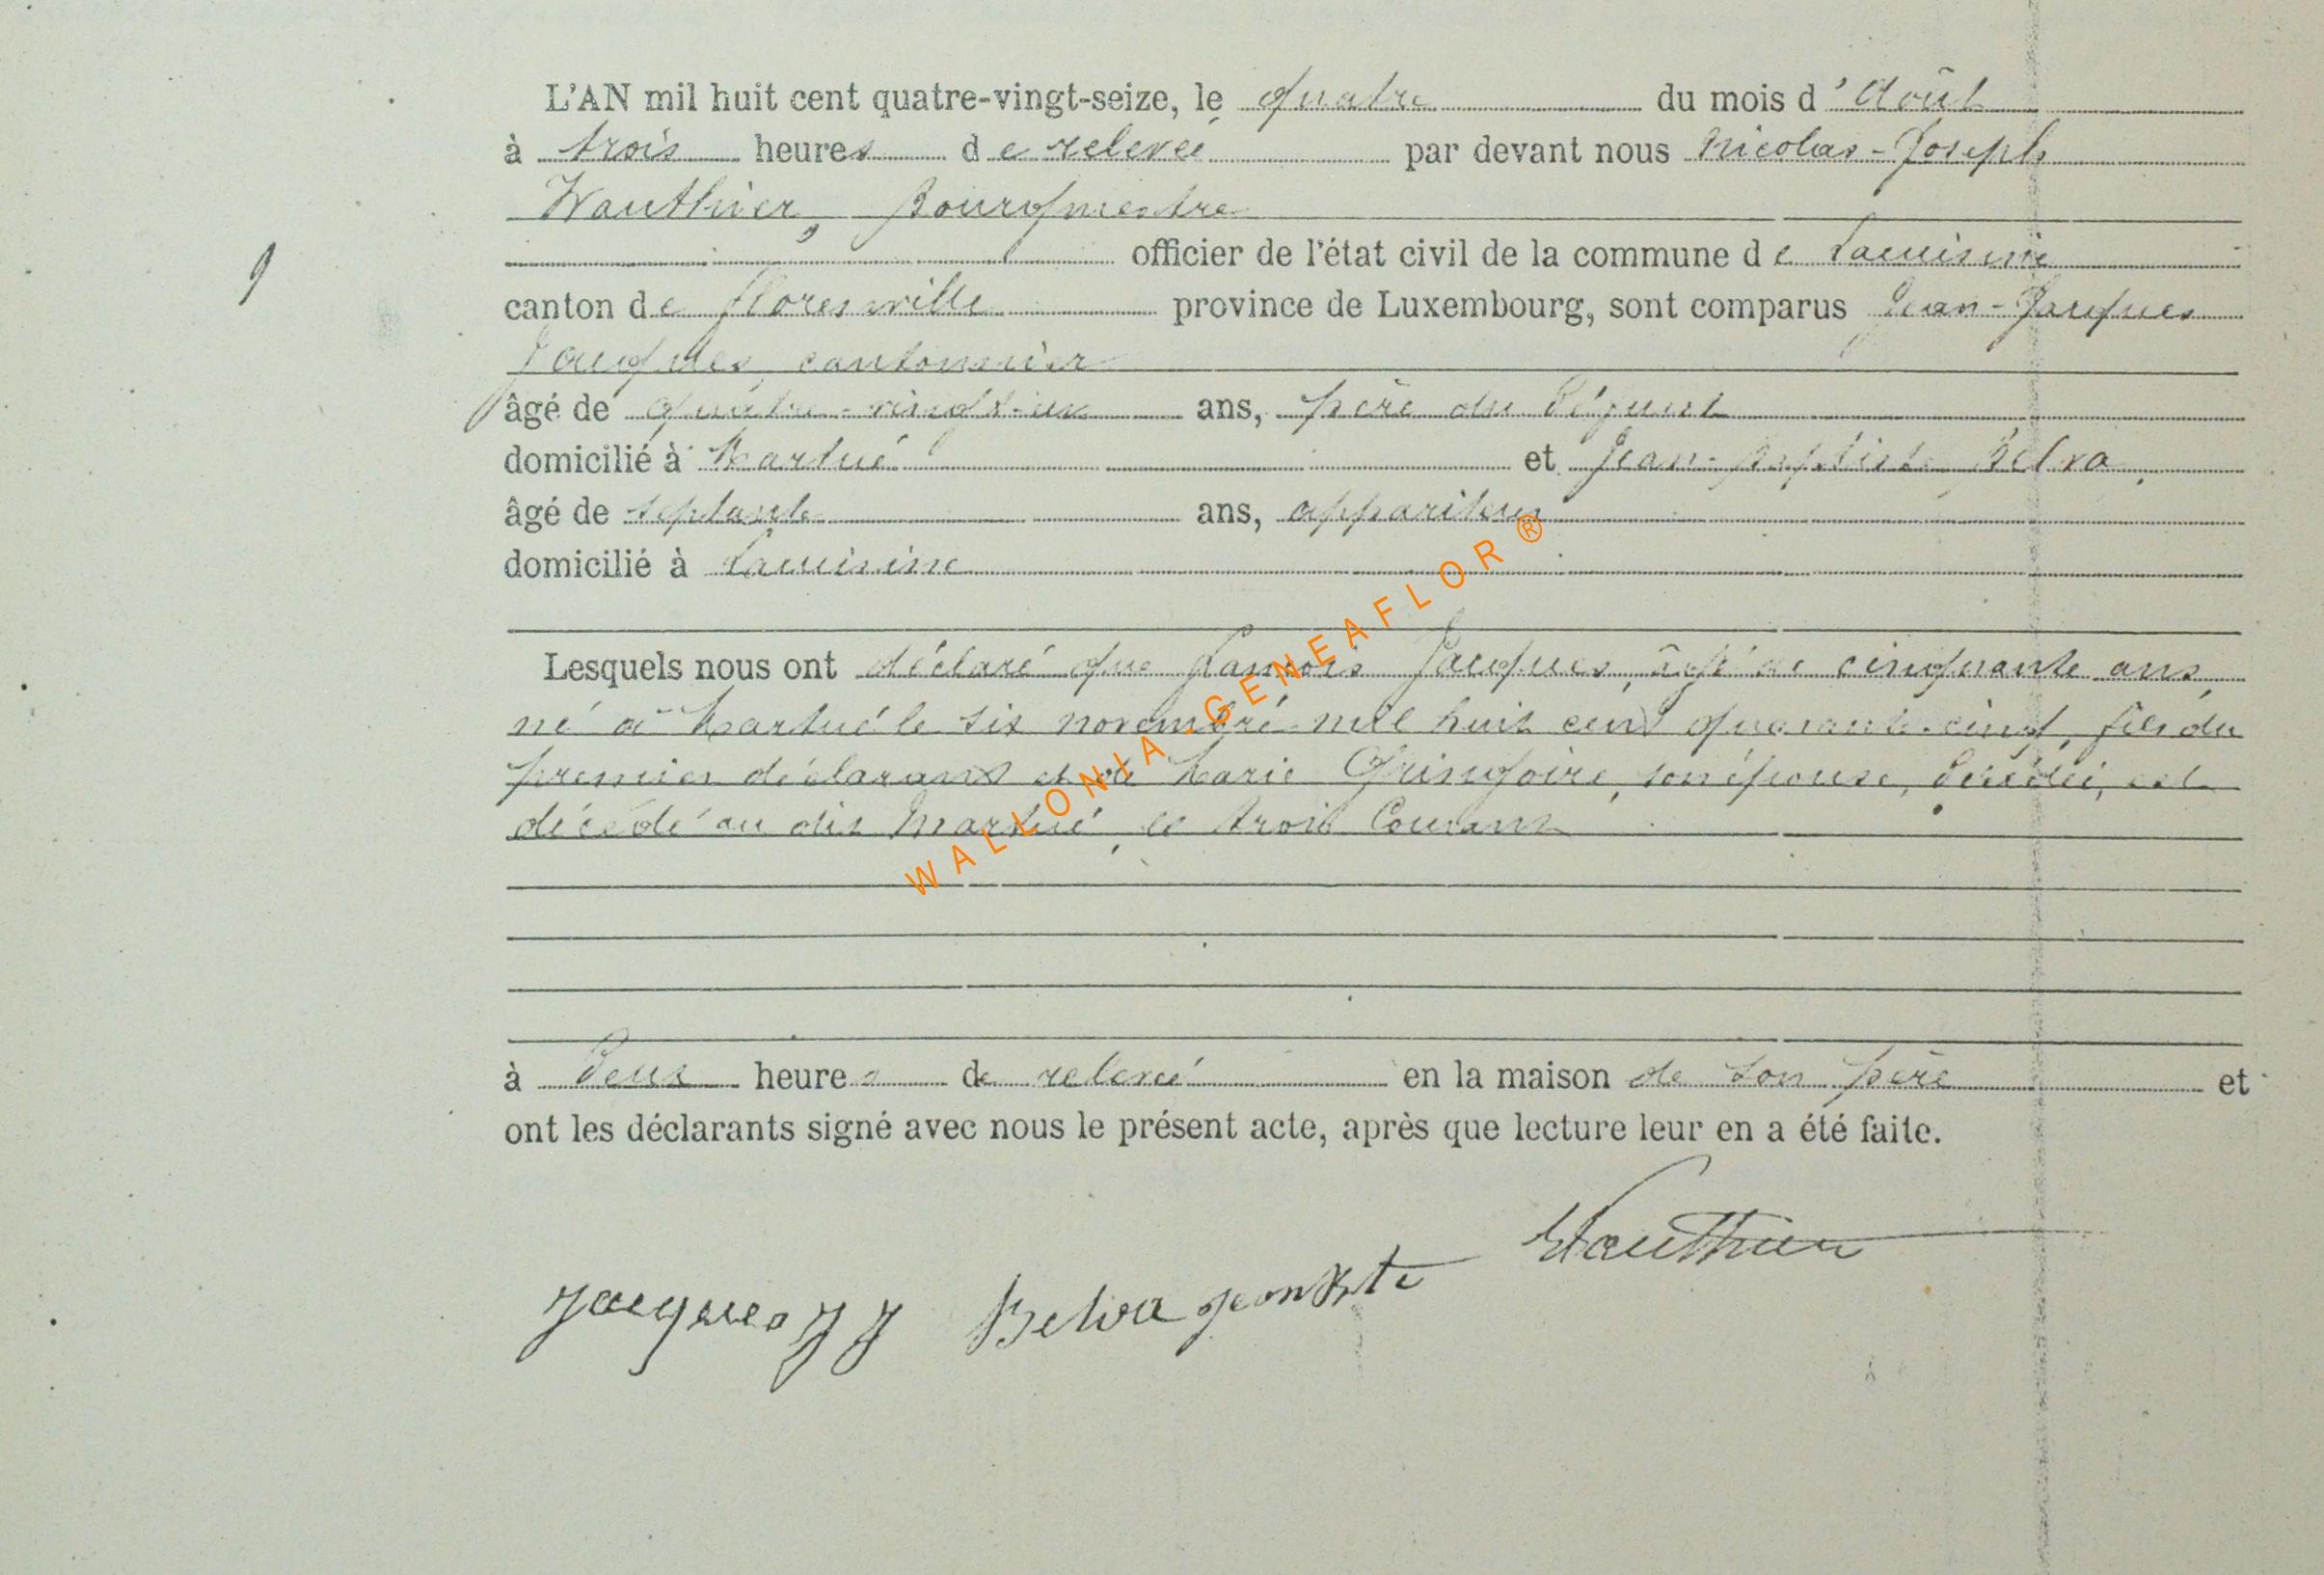 L'AN mil huit cent quatre-vingt-seize, le quatre du mois d'Août
à trois heures de relevée par devant nous Nicolas-Joseph
Wauthier, Bourgmestre
officier de l'état civil de la commune de Lacuisine
9
canton de Florenville province de Luxembourg, sont comparus Jean-Jacques
Jacques, cantonnier
âgé de quatre-vingt-un ans, père du défunt
domicilié à Martué et Jean-Baptiste Belva,
âgé de septante ans, appariteur
domicilié à Lacuisine
Lesquels nous ont déclaré que Jacques, âgé de cinquante ans,
né à Martué le six novembre mil huit cent quarante-cinq, fils du
premier déclarant et de Marie Gringoire, son épouse, décédée, est
décédé au dit Martué, le trois Courant
à Deux heures de relevée en la maison de son père et
ont les déclarants signé avec nous le présent acte, après que lecture leur en a été faite.
Wauthier
Jacques JJ Belva Jean Bte
WALLONIA-GENEAFLOR®